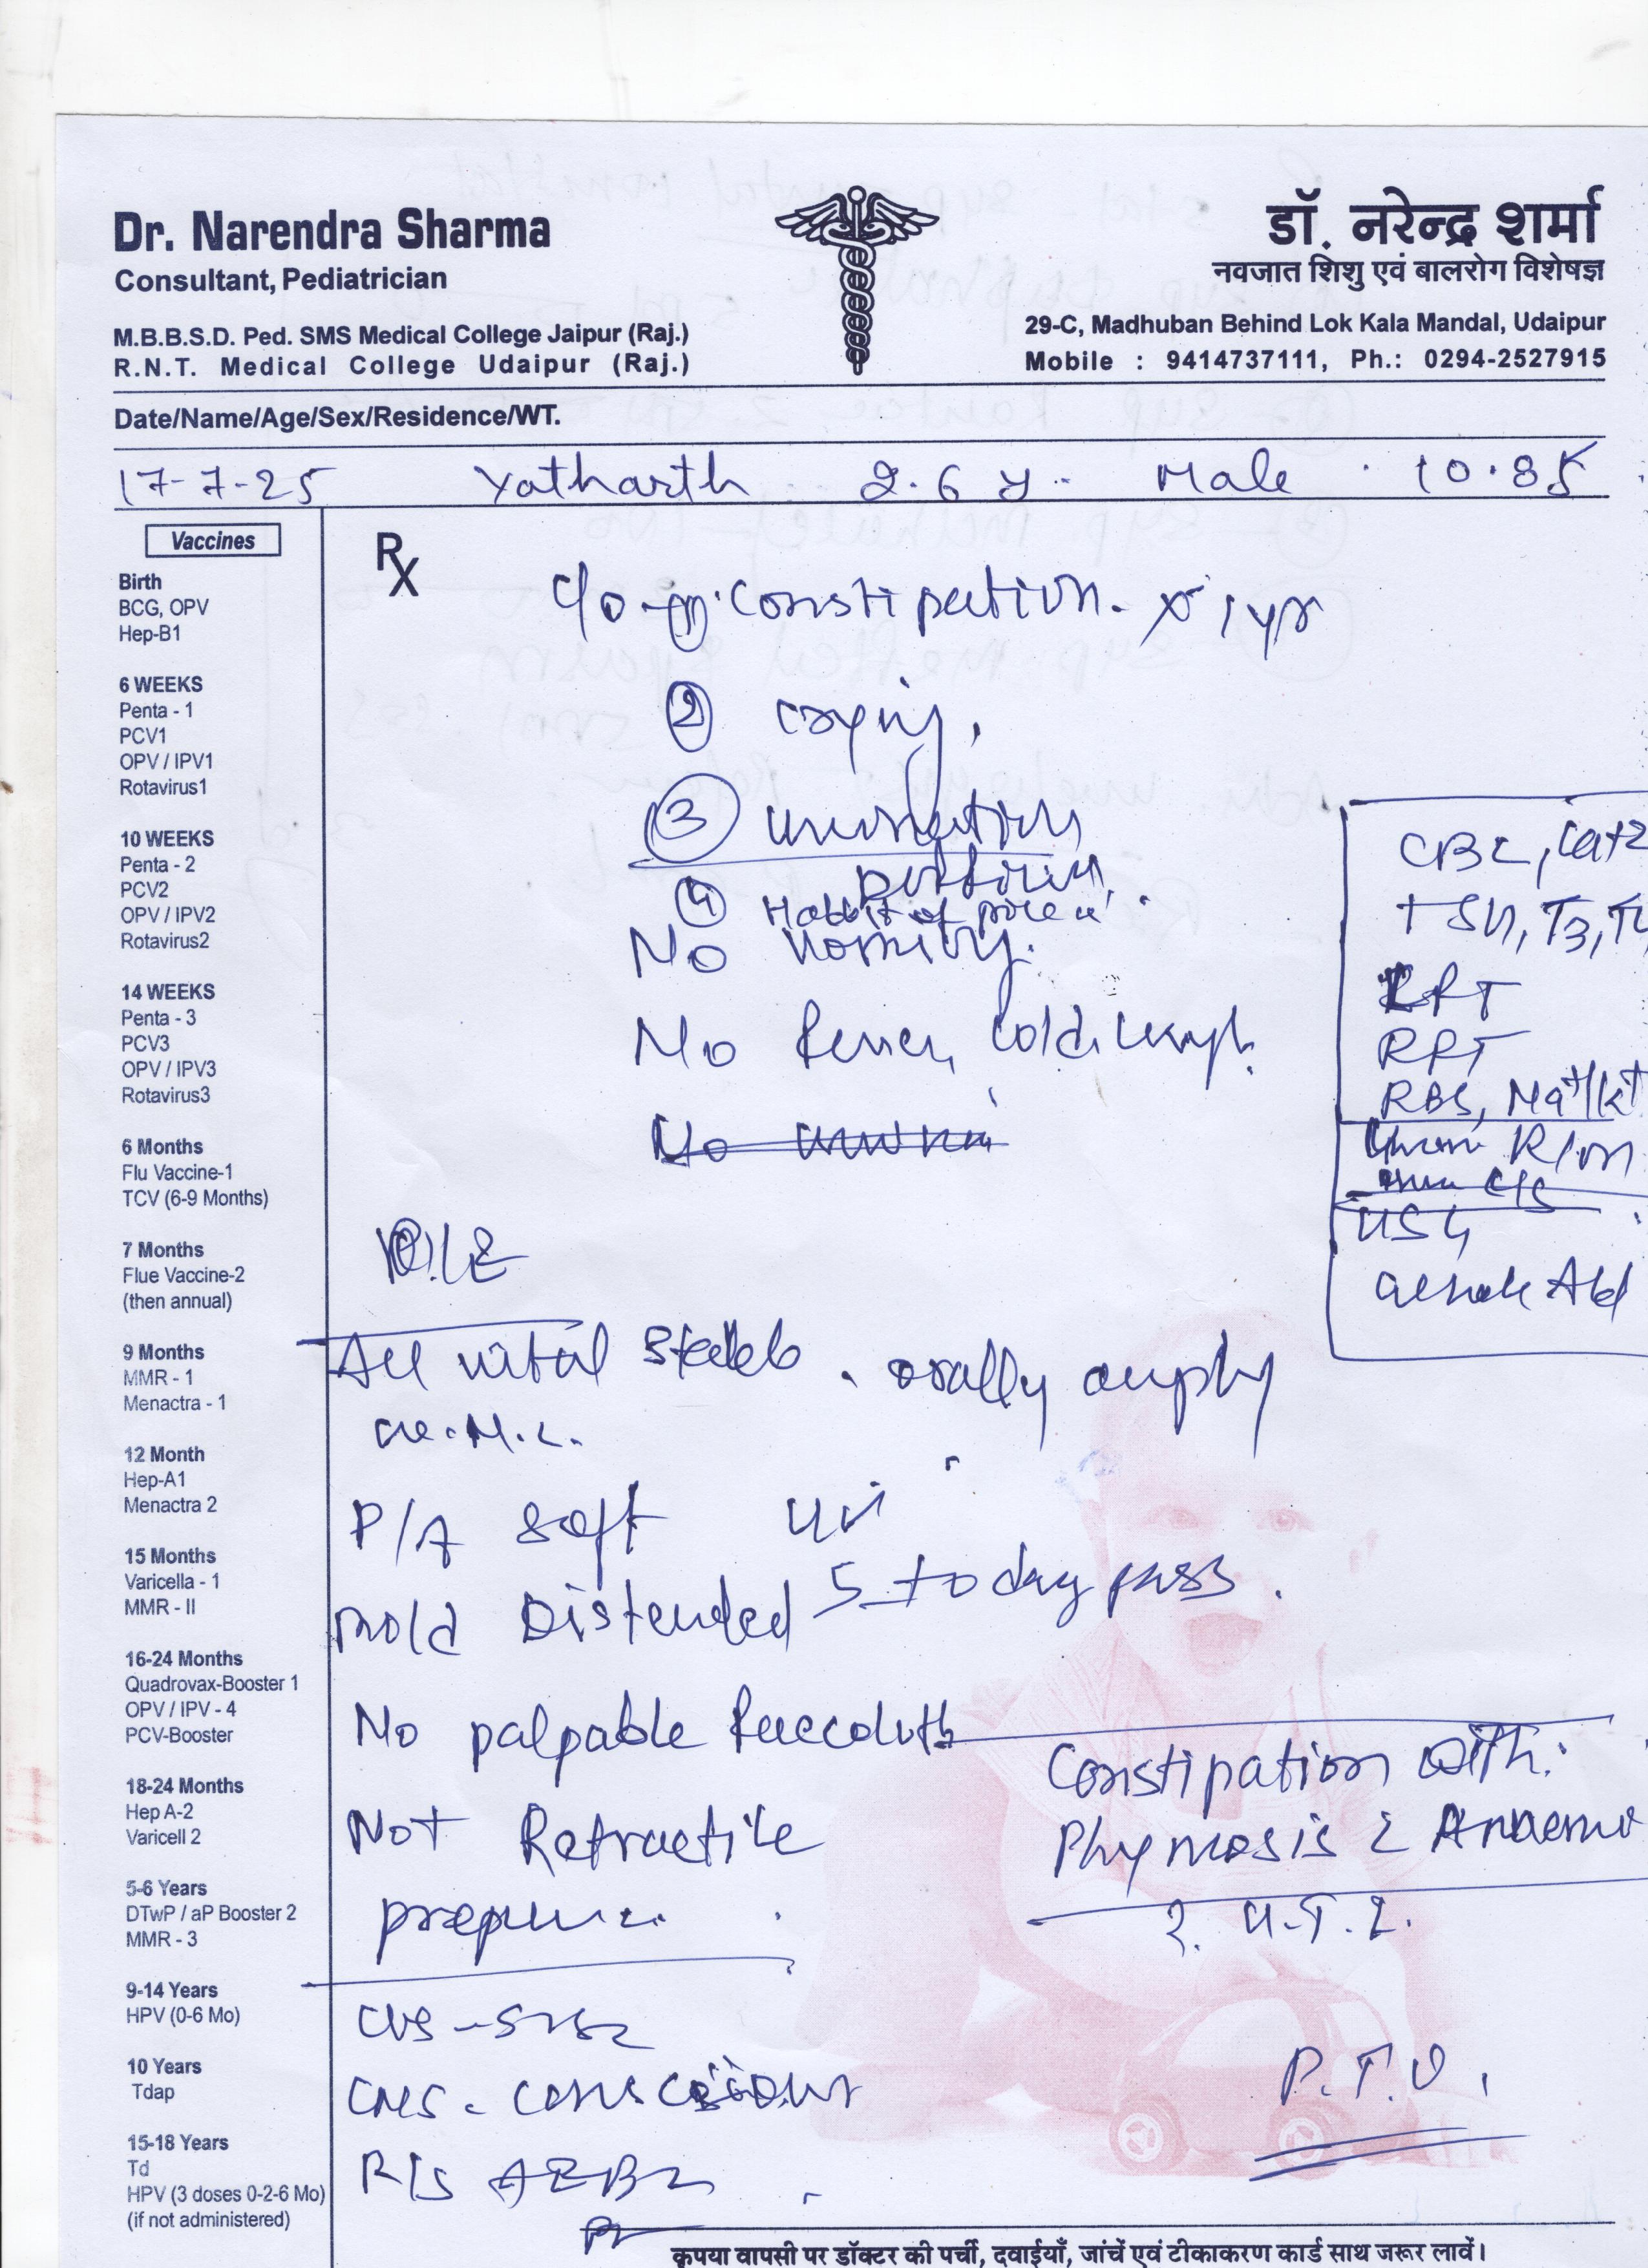 Dr. Narendra Sharma
Consultant, Pediatrician
M.B.B.S.D. Ped. SMS Medical College Jaipur (Raj.)
R.N.T. Medical College Udaipur (Raj.)
डॉ. नरेन्द्र शर्मा
नवजात शिशु एवं बालरोग विशेषज्ञ
29-C, Madhuban Behind Lok Kala Mandal, Udaipur
Mobile : 9414737111, Ph.: 0294-2527915
Date/Name/Age/Sex/Residence/WT.
17-7-25 Yatharth 2.6 y. Male 10.85
Vaccines
Birth
BCG, OPV
Hep-B1
6 WEEKS
Penta - 1
PCV1
OPV / IPV1
Rotavirus1
10 WEEKS
Penta - 2
PCV2
OPV / IPV2
Rotavirus2
14 WEEKS
Penta - 3
PCV3
OPV / IPV3
Rotavirus3
6 Months
Flu Vaccine-1
TCV (6-9 Months)
7 Months
Flue Vaccine-2
(then annual)
9 Months
MMR - 1
Menactra - 1
12 Month
Hep-A1
Menactra 2
15 Months
Varicella - 1
MMR - II
16-24 Months
Quadrovax-Booster 1
OPV / IPV - 4
PCV-Booster
18-24 Months
Hep A-2
Varicell 2
5-6 Years
DTwP / aP Booster 2
MMR - 3
9-14 Years
HPV (0-6 Mo)
10 Years
Tdap
15-18 Years
Td
HPV (3 doses 0-2-6 Mo)
(if not administered)
Rx
C/o - (1) Constipation. x 1 yr
(2) crying.
(3)
(4) Habbit of
No vomiting.
No fever, cold, cough.
No
CBC,
TSH, T3, T4
LFT
RFT
RBS, Na+/K+
R/m
C/S
USG
whole Abd
O/E
All vital stable. orally
P/A soft
mold Distended 5 today pass.
No palpable faecolith
Not Retractile
prepuce.
Constipation with
Phymosis c Anaemi
? U.T.I.
CVS - S1S2
CNS - conscious
R/S AEBE
P.T.O.
कृपया वापसी पर डॉक्टर की पर्ची, दवाईयाँ, जांचें एवं टीकाकरण कार्ड साथ जरूर लावें।